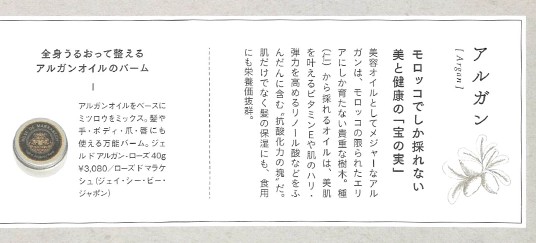 アルガン
[Argan]
モロッコでしか採れない
美と健康の「宝の実」
美容オイルとしてメジャーなアル
ガンは、モロッコの限られたエリ
アにしか育たない貴重な樹木。種
(仁)から採れるオイルは、美肌
を叶えるビタミンEや肌のハリ・
弾力を高めるリノール酸などをふ
んだんに含む“抗酸化力の塊”だ。
肌だけでなく髪の保湿にも、食用
にも栄養価抜群。
全身うるおって整える
アルガンオイルのバーム
アルガンオイルをベースに
ミツロウをミックス。髪や
手・ボディ・爪・唇にも
使える万能バーム。ジェ
ルドアルガン・ローズ40g
¥3,080／ローズドマラケ
シュ(ジェイ・シー・ビー・
ジャポン)